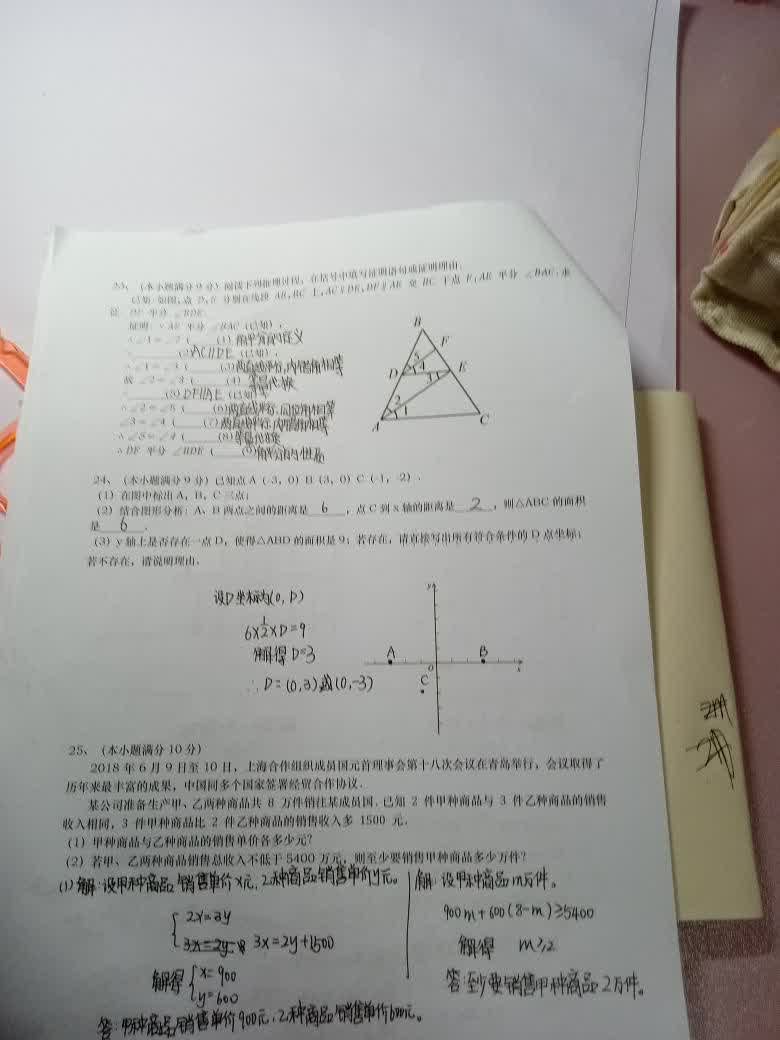 23、(本小题满分9分) 阅读下列推理过程,在括号中填写证明语句或证明理由.
已知:如图,点 D,E 分别在线段 AB,BC 上,AC∥DE,DF∥AE 交 BC 于点 F,AE 平分 ∠BAC,求
证:DF 平分 ∠BDE.
证明:∵AE 平分 ∠BAC (已知),
∴∠1=∠2 ( (1) 角平分线的定义
∵ (2) AC∥DE (已知),
∴∠1=∠3 ( (3) 两直线平行,内错角相等
故 ∠2=∠3 ( (4) 等量代换
∵ (5) DF∥AE (已知)
∴∠2=∠5 ( (6) 两直线平行,同位角相等
∠3=∠4 ( (7) 两直线平行,内错角相等
∴∠5=∠4 ( (8) 等量代换
∴DF 平分 ∠BDE ( (9)
B
F
5
4
D
3
E
2
1
A
C
24、(本小题满分9分)已知点 A(-3,0)B(3,0)C(-1,-2).
(1)在图中标出 A,B,C 三点;
(2)结合图形分析:A、B 两点之间的距离是 6 ,点 C 到 x 轴的距离是 2 ,则△ABC 的面积
是 6 .
(3)y 轴上是否存在一点 D,使得△ABD 的面积是 9;若存在,请直接写出所有符合条件的 D 点坐标;
若不存在,请说明理由.
设D坐标为(0,D)
6×1/2×D=9
解得 D=3
∴D=(0,3)或(0,-3)
y
A
B
O
x
C
25、(本小题满分10分)
2018 年 6 月 9 日至 10 日,上海合作组织成员国元首理事会第十八次会议在青岛举行,会议取得了
历年来最丰富的成果,中国同多个国家签署经贸合作协议.
某公司准备生产甲、乙两种商品共 8 万件销往某成员国.已知 2 件甲种商品与 3 件乙种商品的销售
收入相同,3 件甲种商品比 2 件乙种商品的销售收入多 1500 元.
(1)甲种商品与乙种商品的销售单价各多少元?
(2)若甲、乙两种商品销售总收入不低于 5400 万元,则至少要销售甲种商品多少万件?
(1)解:设甲种商品销售单价x元,乙种商品销售单价y元。
2x=3y
3x=2y 3x=2y+1500
解得 x=900
y=600
答:甲种商品销售单价900元,乙种商品销售单价600元。
解:设甲种商品m万件。
900m+600(8-m)≥5400
解得 m≥2
答:至少要销售甲种商品2万件。